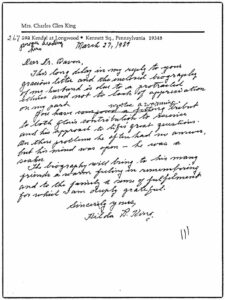 Mrs. Charles Glen King
267 Kendal at Longwood • Kennett Sq., Pennsylvania 19348
March 27, 1989
Dear Dr. Bacon,
This long delay in my reply to your
gracious letter and the enclosed biography
of my husband is due to a protracted
illness and not to lack of appreciation
on my part.
You have a fitting tribute
to both Glen's contribution to science
and his approach to life's great questions.
On these problems he often had no answer,
but his mind was open - he was a
seeker.
The biography will bring to his many
friends a warm feeling in remembering
and to the family a sense of fulfilment
for which I am deeply grateful.
Sincerely yours,
Hilda B. King